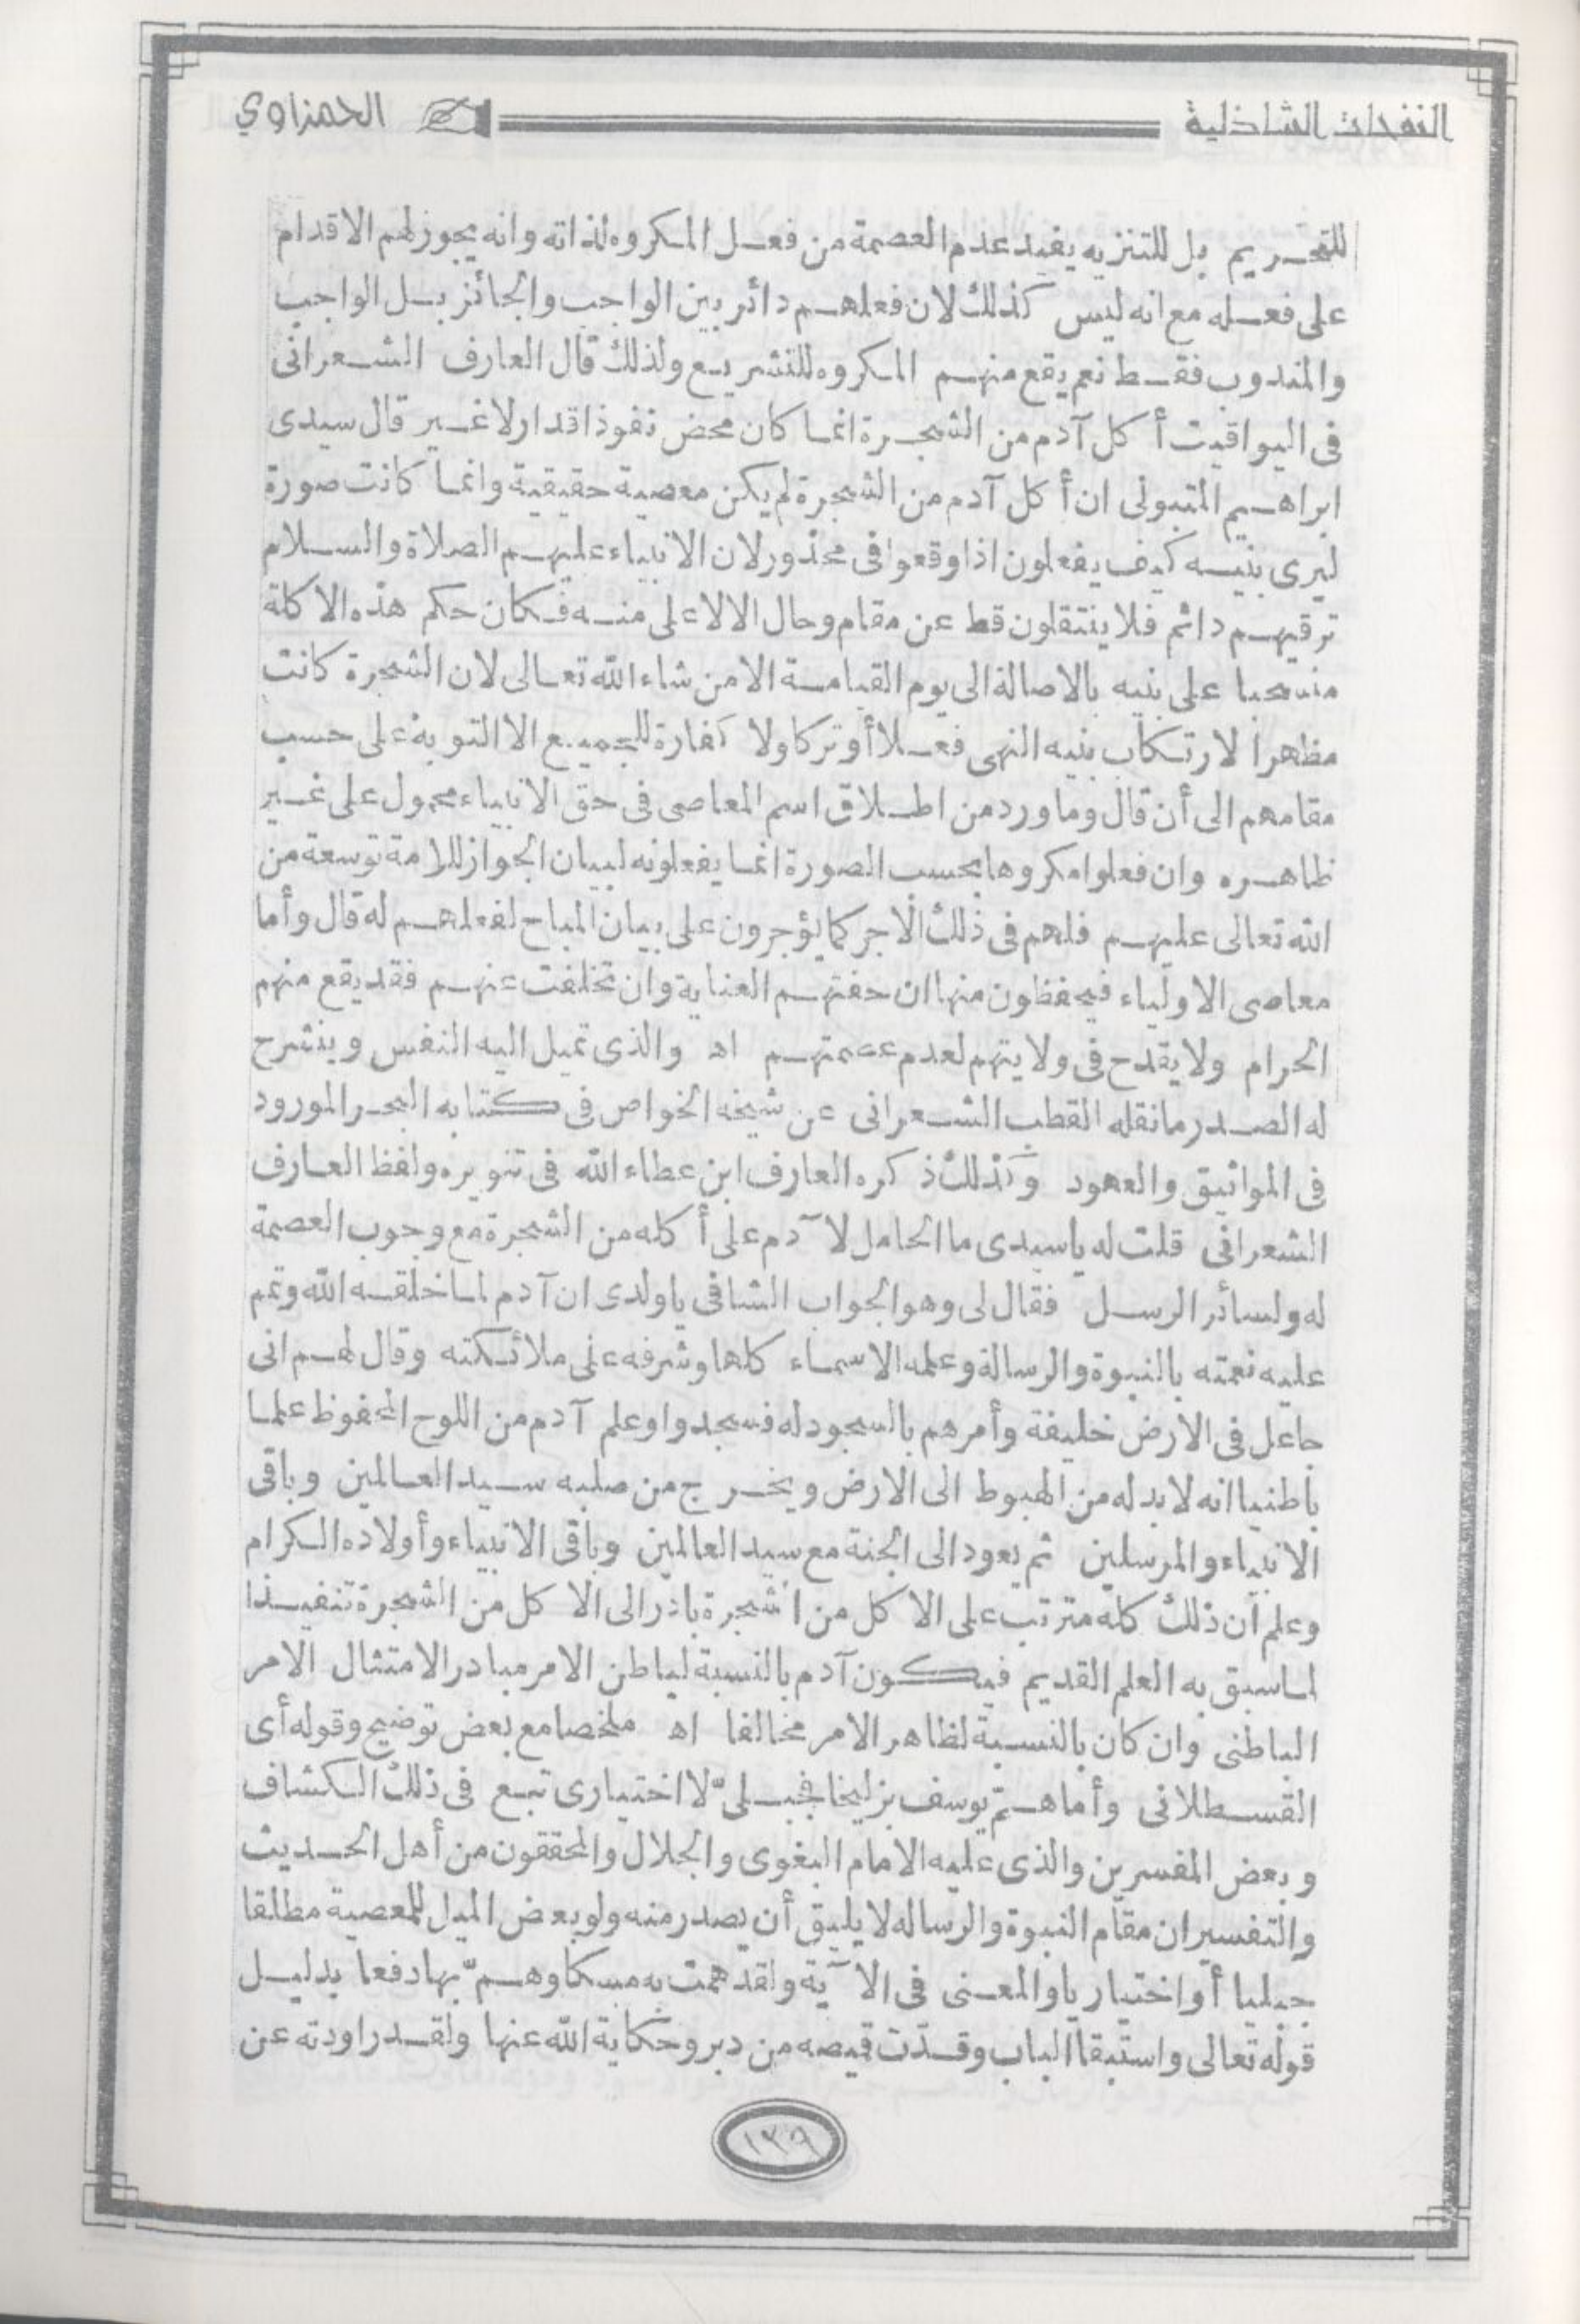 النفحات الشاذلية
الحمزاوي
للتحريم بل للتنزيه يفيد عدم العصمة من فعل المكروه لذاته وانه يجوز لهم الاقدام
على فعله مع انه ليس كذلك لان فعلهم دائر بين الواجب والجائز بل الواجب
والمندوب فقط نعم يقع منهم المكروه للتشريع ولذلك قال العارف الشعرانى
فى اليواقيت أكل آدم من الشجرة انما كان محض نفوذ اقدار لا غير قال سيدى
ابراهيم المتبولى ان أكل آدم من الشجرة لم يكن معصية حقيقية وانما كانت صورة
ليرى بنيه كيف يفعلون اذا وقعوا فى محذور لان الانبياء عليهم الصلاة والسلام
ترقيهم دائم فلا ينتقلون قط عن مقام وحال الا لاعلى منه فكان حكم هذه الاكلة
منسحبا على بنيه بالاصالة الى يوم القيامة الا من شاء الله تعالى لان الشجرة كانت
مظهرا لارتكاب بنيه النهى فعلا أو تركا ولا كفارة للجميع الا التوبة على حسب
مقامهم الى أن قال وما ورد من اطلاق اسم المعاصى فى حق الانبياء محمول على غير
ظاهره وان فعلوا مكروها بحسب الصورة انما يفعلونه لبيان الجواز للامة توسعة من
الله تعالى عليهم فلهم فى ذلك الاجر كما يؤجرون على بيان المباح لفعلهم له قال وأما
معاصى الاولياء فيحفظون منها ان حفتهم العناية وان تخلفت عنهم فقد يقع منهم
الحرام ولا يقدح فى ولايتهم لعدم عصمتهم اه والذى تميل اليه النفس وينشرح
له الصدر ما نقله القطب الشعرانى عن شيخه الخواص فى كتابه البحر المورود
فى المواثيق والعهود وكذلك ذكره العارف ابن عطاء الله فى تنويره ولفظ العارف
الشعرانى قلت له ياسيدى ما الحامل لا آدم على أكله من الشجرة مع وجوب العصمة
له ولسائر الرسل فقال لى وهو الجواب الشافى ياولدى ان آدم لما خلقه الله وتمم
عليه نعمته بالنبوة والرسالة وعلمه الاسماء كلها وشرفه على ملائكته وقال لهم انى
جاعل فى الارض خليفة وأمرهم بالسجود له فسجدوا وعلم آدم من اللوح المحفوظ علما
باطنيا انه لابد له من الهبوط الى الارض ويخرج من صلبه سيد العالمين وباقى
الانبياء والمرسلين ثم يعود الى الجنة مع سيد العالمين وباقى الانبياء وأولاده الكرام
وعلم أن ذلك كله مترتب على الاكل من الشجرة بادر الى الاكل من الشجرة تنفيذا
لما سبق به العلم القديم فيكون آدم بالنسبة لباطن الامر مبادرا لامتثال الامر
الباطنى وان كان بالنسبة لظاهر الامر مخالفا اه ملخصا مع بعض توضيح وقوله أى
القسطلانى وأما همّ يوسف بزليخا فجبلىّ لا اختيارى تبع فى ذلك الكشاف
وبعض المفسرين والذى عليه الامام البغوى والجلال والمحققون من أهل الحديث
والتفسير ان مقام النبوة والرساله لا يليق أن يصدر منه ولو بعض الميل للمعصية مطلقا
جبليا أو اختياريا والمعنى فى الآية ولقد همت به مسكا وهمّ بها دفعا بدليل
قوله تعالى واستبقا الباب وقدّت قميصه من دبر وحكاية الله عنها ولقد راودته عن
١٣٩